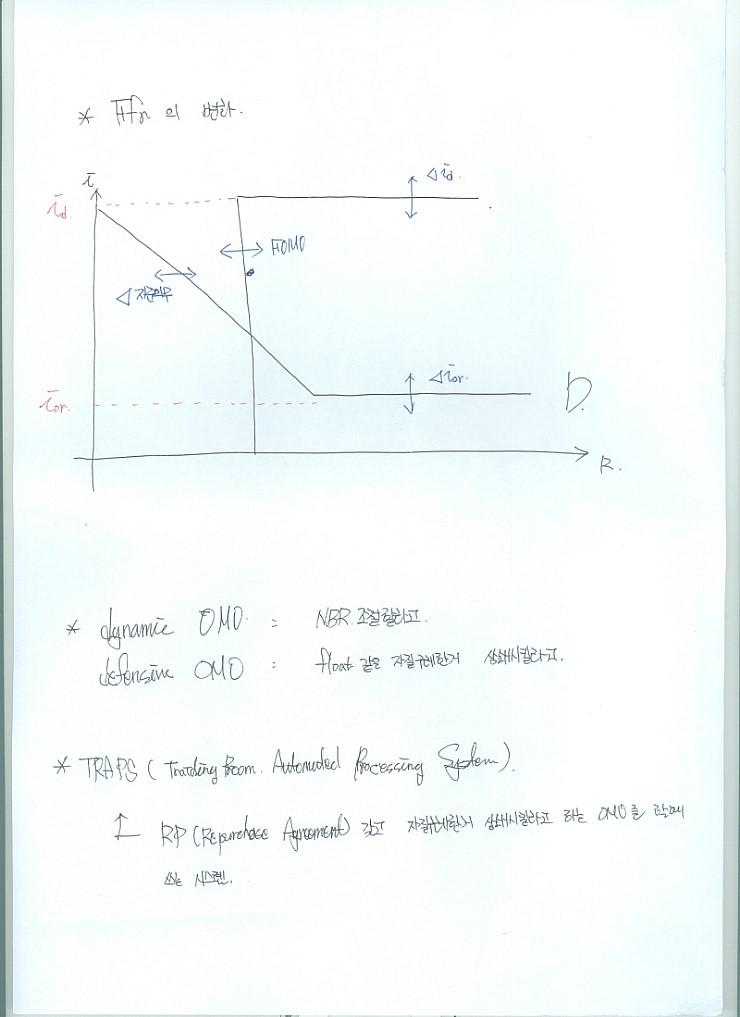 * iffr 의 변화.
i
id
△ id.
OMO
△ 지준의무
ior
△ ior.
D.
R.
* dynamic OMO : NBR 조절할라고.
defensive OMO : float 같은 자질구레한거 상쇄시킬라고.
* TRAPS ( Trading Room. Automated Processing System ).
↑ RP (Repurchase Agreement) 갖고 자질구레한거 상쇄시킬라고 하는 OMO를 할때
쓰는 시스템.